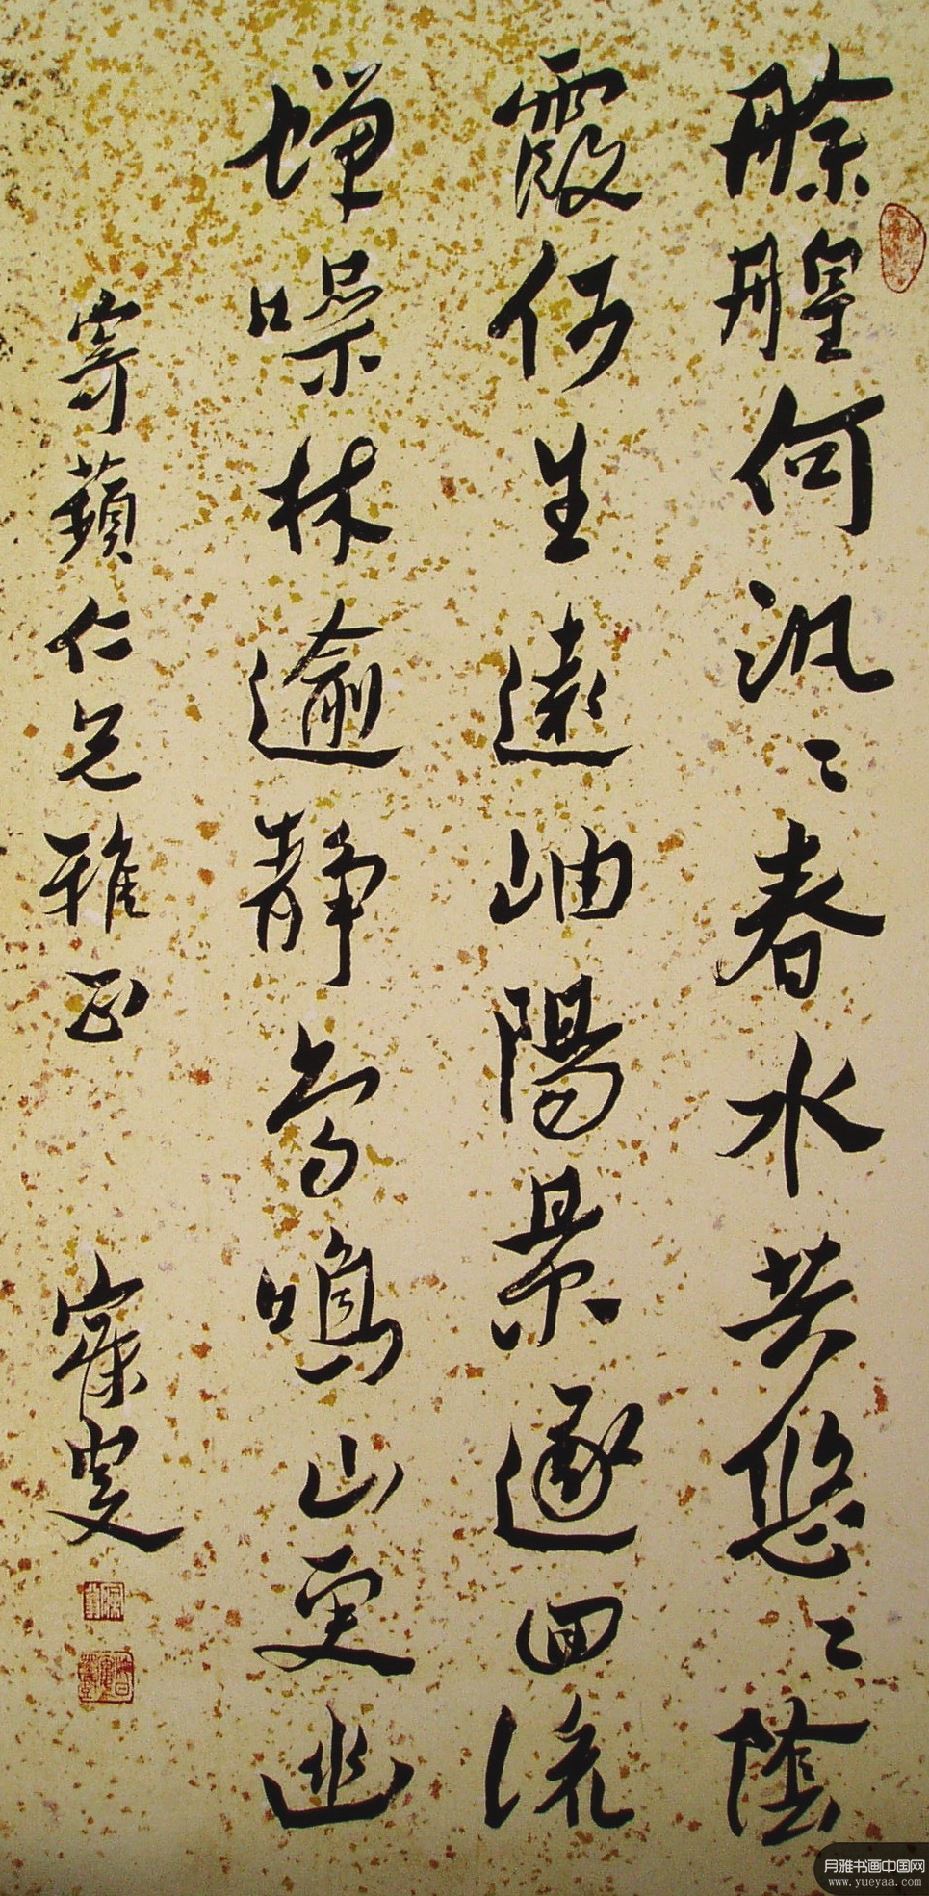 艅艎何汎〻春水共悠〻陰
霞何生遠岫陽景逐回流
蟬噪林逾靜鳥鳴山更幽
寄蘋仁兄雅正 寐叟
月雅书画中国网
www.yueyaa.com